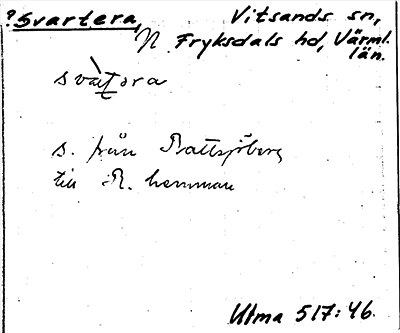 ? Svartera, Vitsands sn,
N Fryksdals hd, Värml.
län.
svàt̲ora
s. från Rattsjöberg
till R. hemman
Utma 517:46.